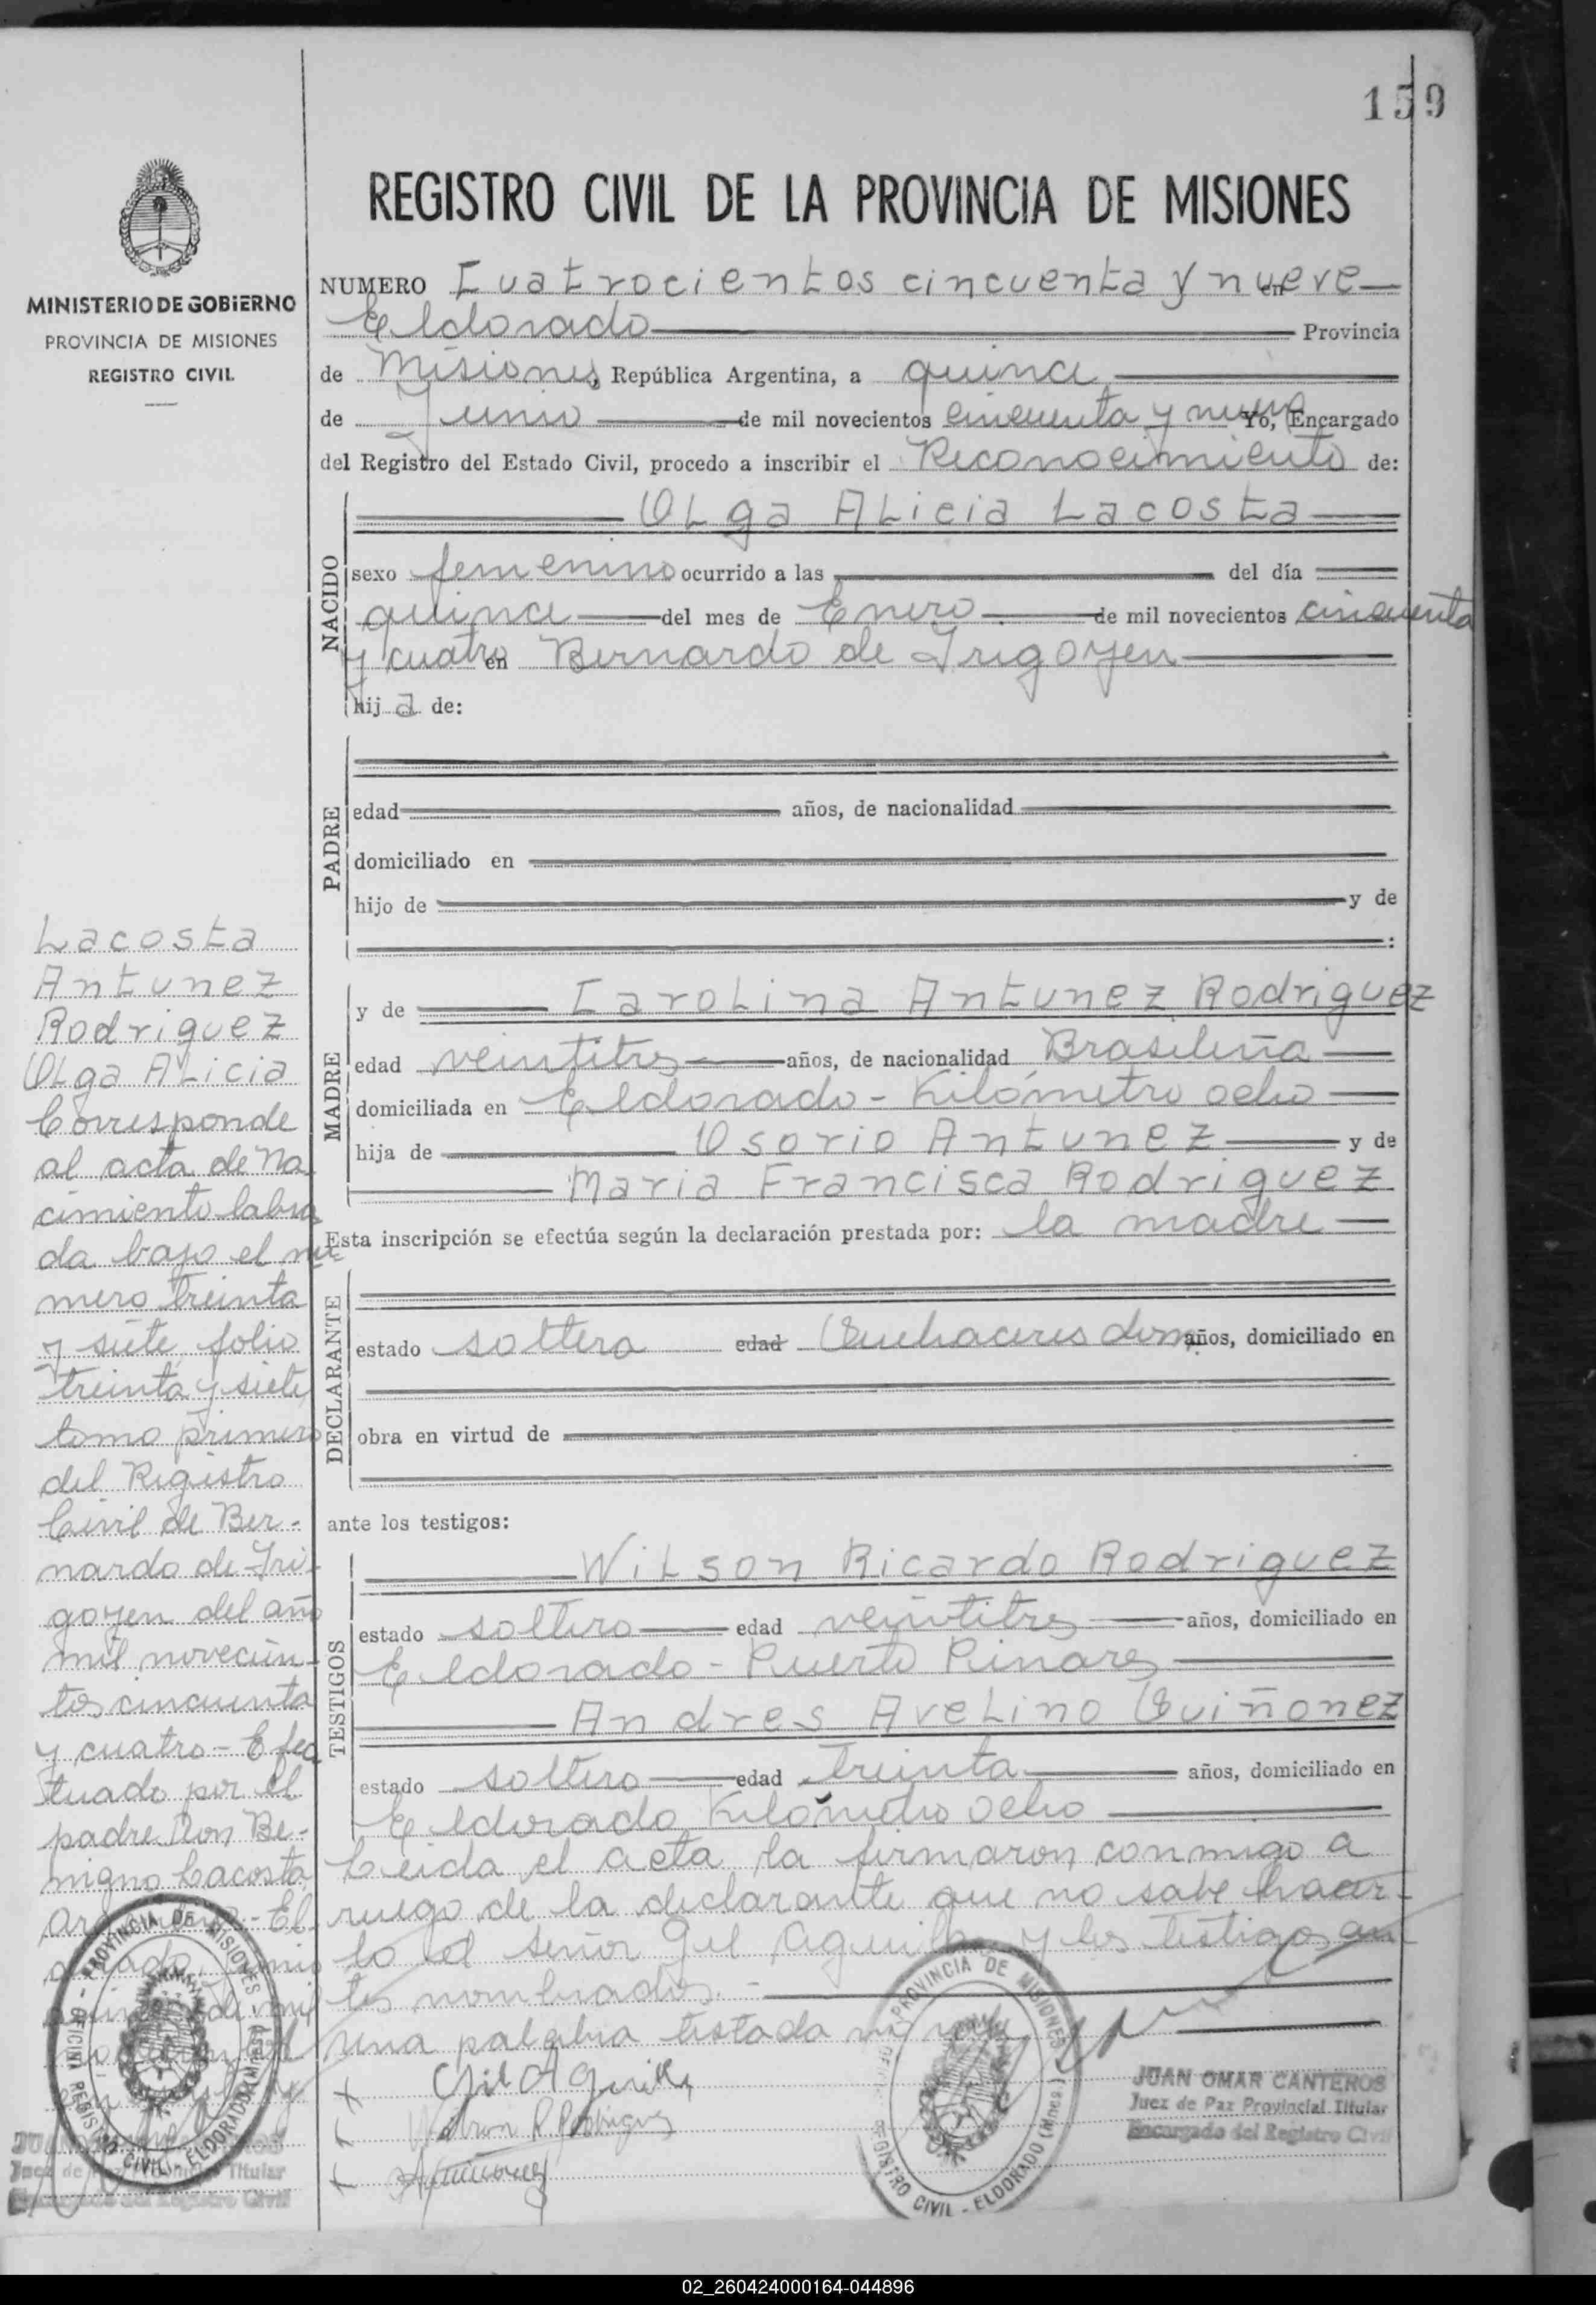 159
REGISTRO CIVIL DE LA PROVINCIA DE MISIONES
MINISTERIO DE GOBIERNO
PROVINCIA DE MISIONES
REGISTRO CIVIL
NUMERO Cuatrocientos cincuenta y nueve en
Eldorado Provincia
de Misiones, República Argentina, a quince
de Junio de mil novecientos cincuenta y nueve Yo, Encargado
del Registro del Estado Civil, procedo a inscribir el Reconocimiento de:
NACIDO
Olga Alicia Lacosta
sexo femenino ocurrido a las del día
quince del mes de Enero de mil novecientos cincuenta
y cuatro en Bernardo de Irigoyen
hij a de:
PADRE
edad años, de nacionalidad
domiciliado en
hijo de y de
:
MADRE
y de Carolina Antunez Rodriguez
edad veintitres años, de nacionalidad Brasileña
domiciliada en Eldorado - Kilómetro ocho
hija de Osorio Antunez y de
Maria Francisca Rodriguez
Esta inscripción se efectúa según la declaración prestada por: la madre
DECLARANTE
estado soltera edad Quehaceres dom años, domiciliado en
obra en virtud de
ante los testigos:
TESTIGOS
Wilson Ricardo Rodriguez
estado soltero edad veintitres años, domiciliado en
Eldorado - Puerto Pinares
Andres Avelino Quiñonez
estado soltero edad treinta años, domiciliado en
Eldorado Kilómetro ocho
Leida el acta la firmaron conmigo a
ruego de la declarante que no sabe hacer-
lo el señor Gil Aguilar y los testigos an
tes nombrados. -
una palabra testada no vale
x Gil Aguilar
x Wilson R. Rodriguez
x AQuiñonez
JUAN OMAR CANTEROS
Juez de Paz Provincial Titular
Encargado del Registro Civil
PROVINCIA DE MISIONES
REGISTRO CIVIL - ELDORADO (Mnes.)
Lacosta
Antunez
Rodriguez
Olga Alicia
Corresponde
al acta de Na
cimiento labra
da bajo el nú
mero treinta
y siete folio
treinta y siete
tomo primero
del Registro
Civil de Ber-
nardo de Iri-
goyen del año
mil novecien-
tos cincuenta
y cuatro - Efec
tuado por el
padre Don Be-
nigno Lacosta
- El
PROVINCIA DE MISIONES
OFICINA REGISTRO CIVIL - ELDORADO
Juez de Titular
Encargado del Registro Civil
02_260424000164-044896